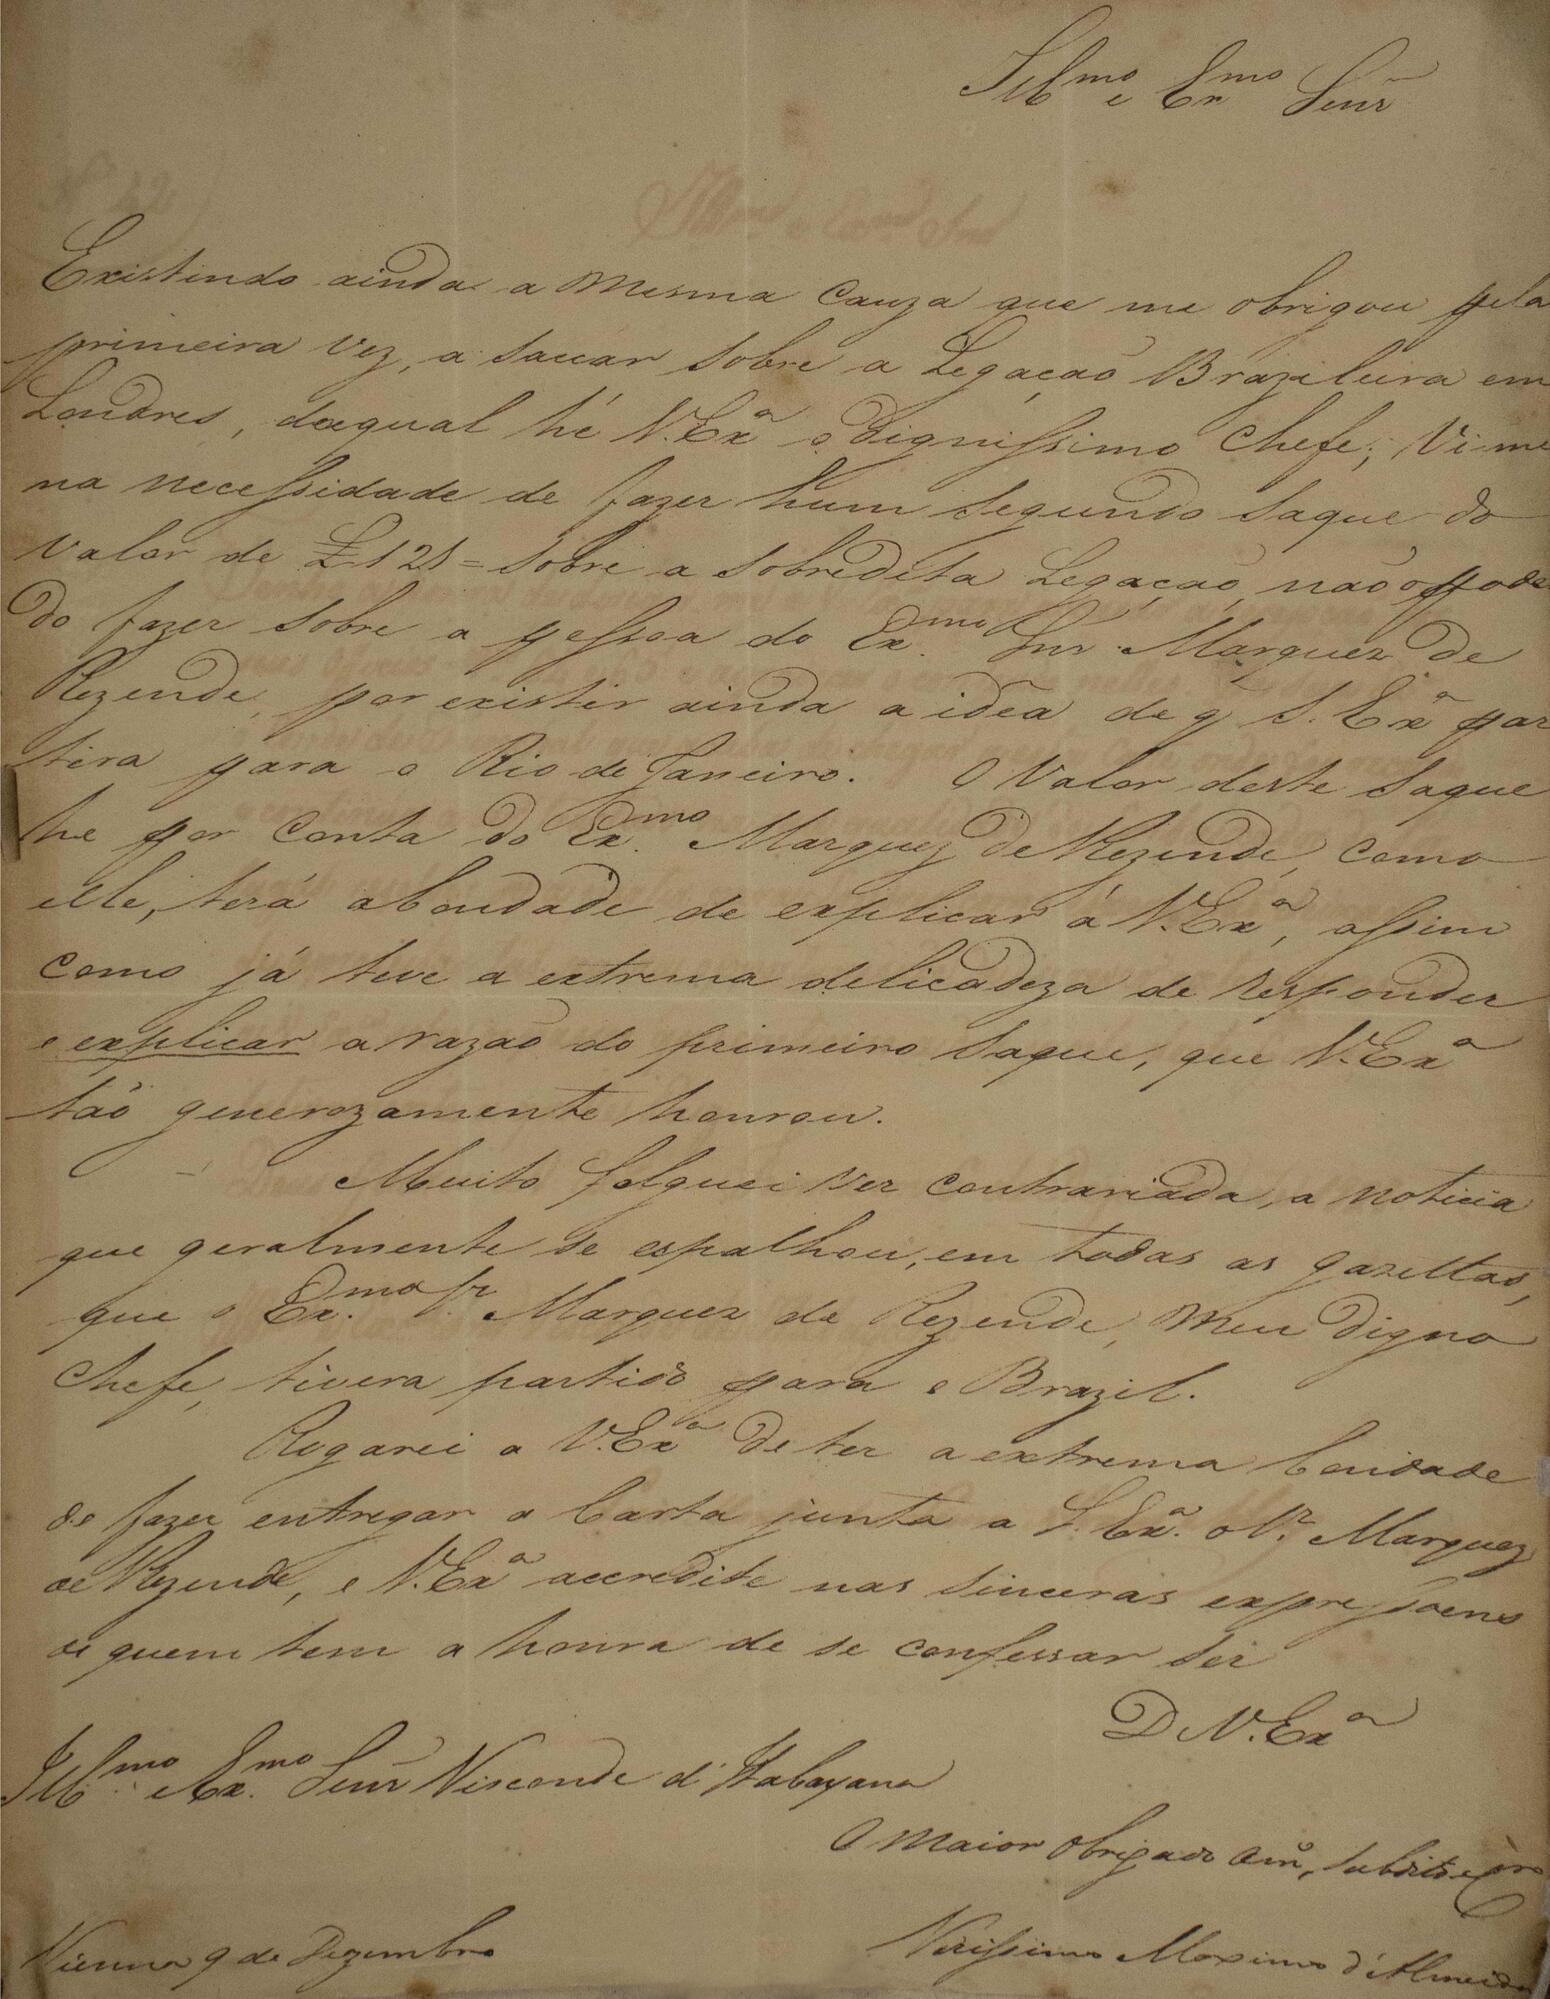 Ill.mo e Ex.mo Senr
Existindo ainda a mesma cauza que me obrigou pela
primeira vez, a saccar sobre a Legação Brazileira em
Londres, daqual hé V. Exª o dignissimo Chefe; Vi-me
na necessidade de fazer hum segundo saque do
valor de £121 = sobre a sobredita Legação, não o poden
do fazer sobre a pessoa do Ex.mo Snr. Marquez de
Rezende, por existir ainda a idéa de q S. Exª par
tira para o Rio de Janeiro. O Valor deste saque
he por conta do Ex.mo Marquez de Rezende, como
elle, terá abondade de explicar á V. Exª, assim
como já teve a extrema delicadeza de responder
e explicar a razão do primeiro saque, que V. Exª
tão generozamente honrou.
Muito folguei ver contrariada, a noticia
que geralmente se espalhou, em todas as gazettas,
que o Ex.mo Sr. Marquez de Rezende, meu digno
Chefe, tivera partido para o Brazil.
Rogarei a V. Exª de ter a extrema bondade
de fazer entregar a Carta junta a S. Exª. o Sr. Marquez
de Rezende, e V. Exª accredite nas sinceras expressoens
de quem tem a honra de se confessar ser
D V. Exª
Ill.mo e Ex.mo Senr Visconde d'Itabayana
O maior obrigado am, subdito e
Verissimo Maximo d'Almeida
Vienna 9 de Dezembro